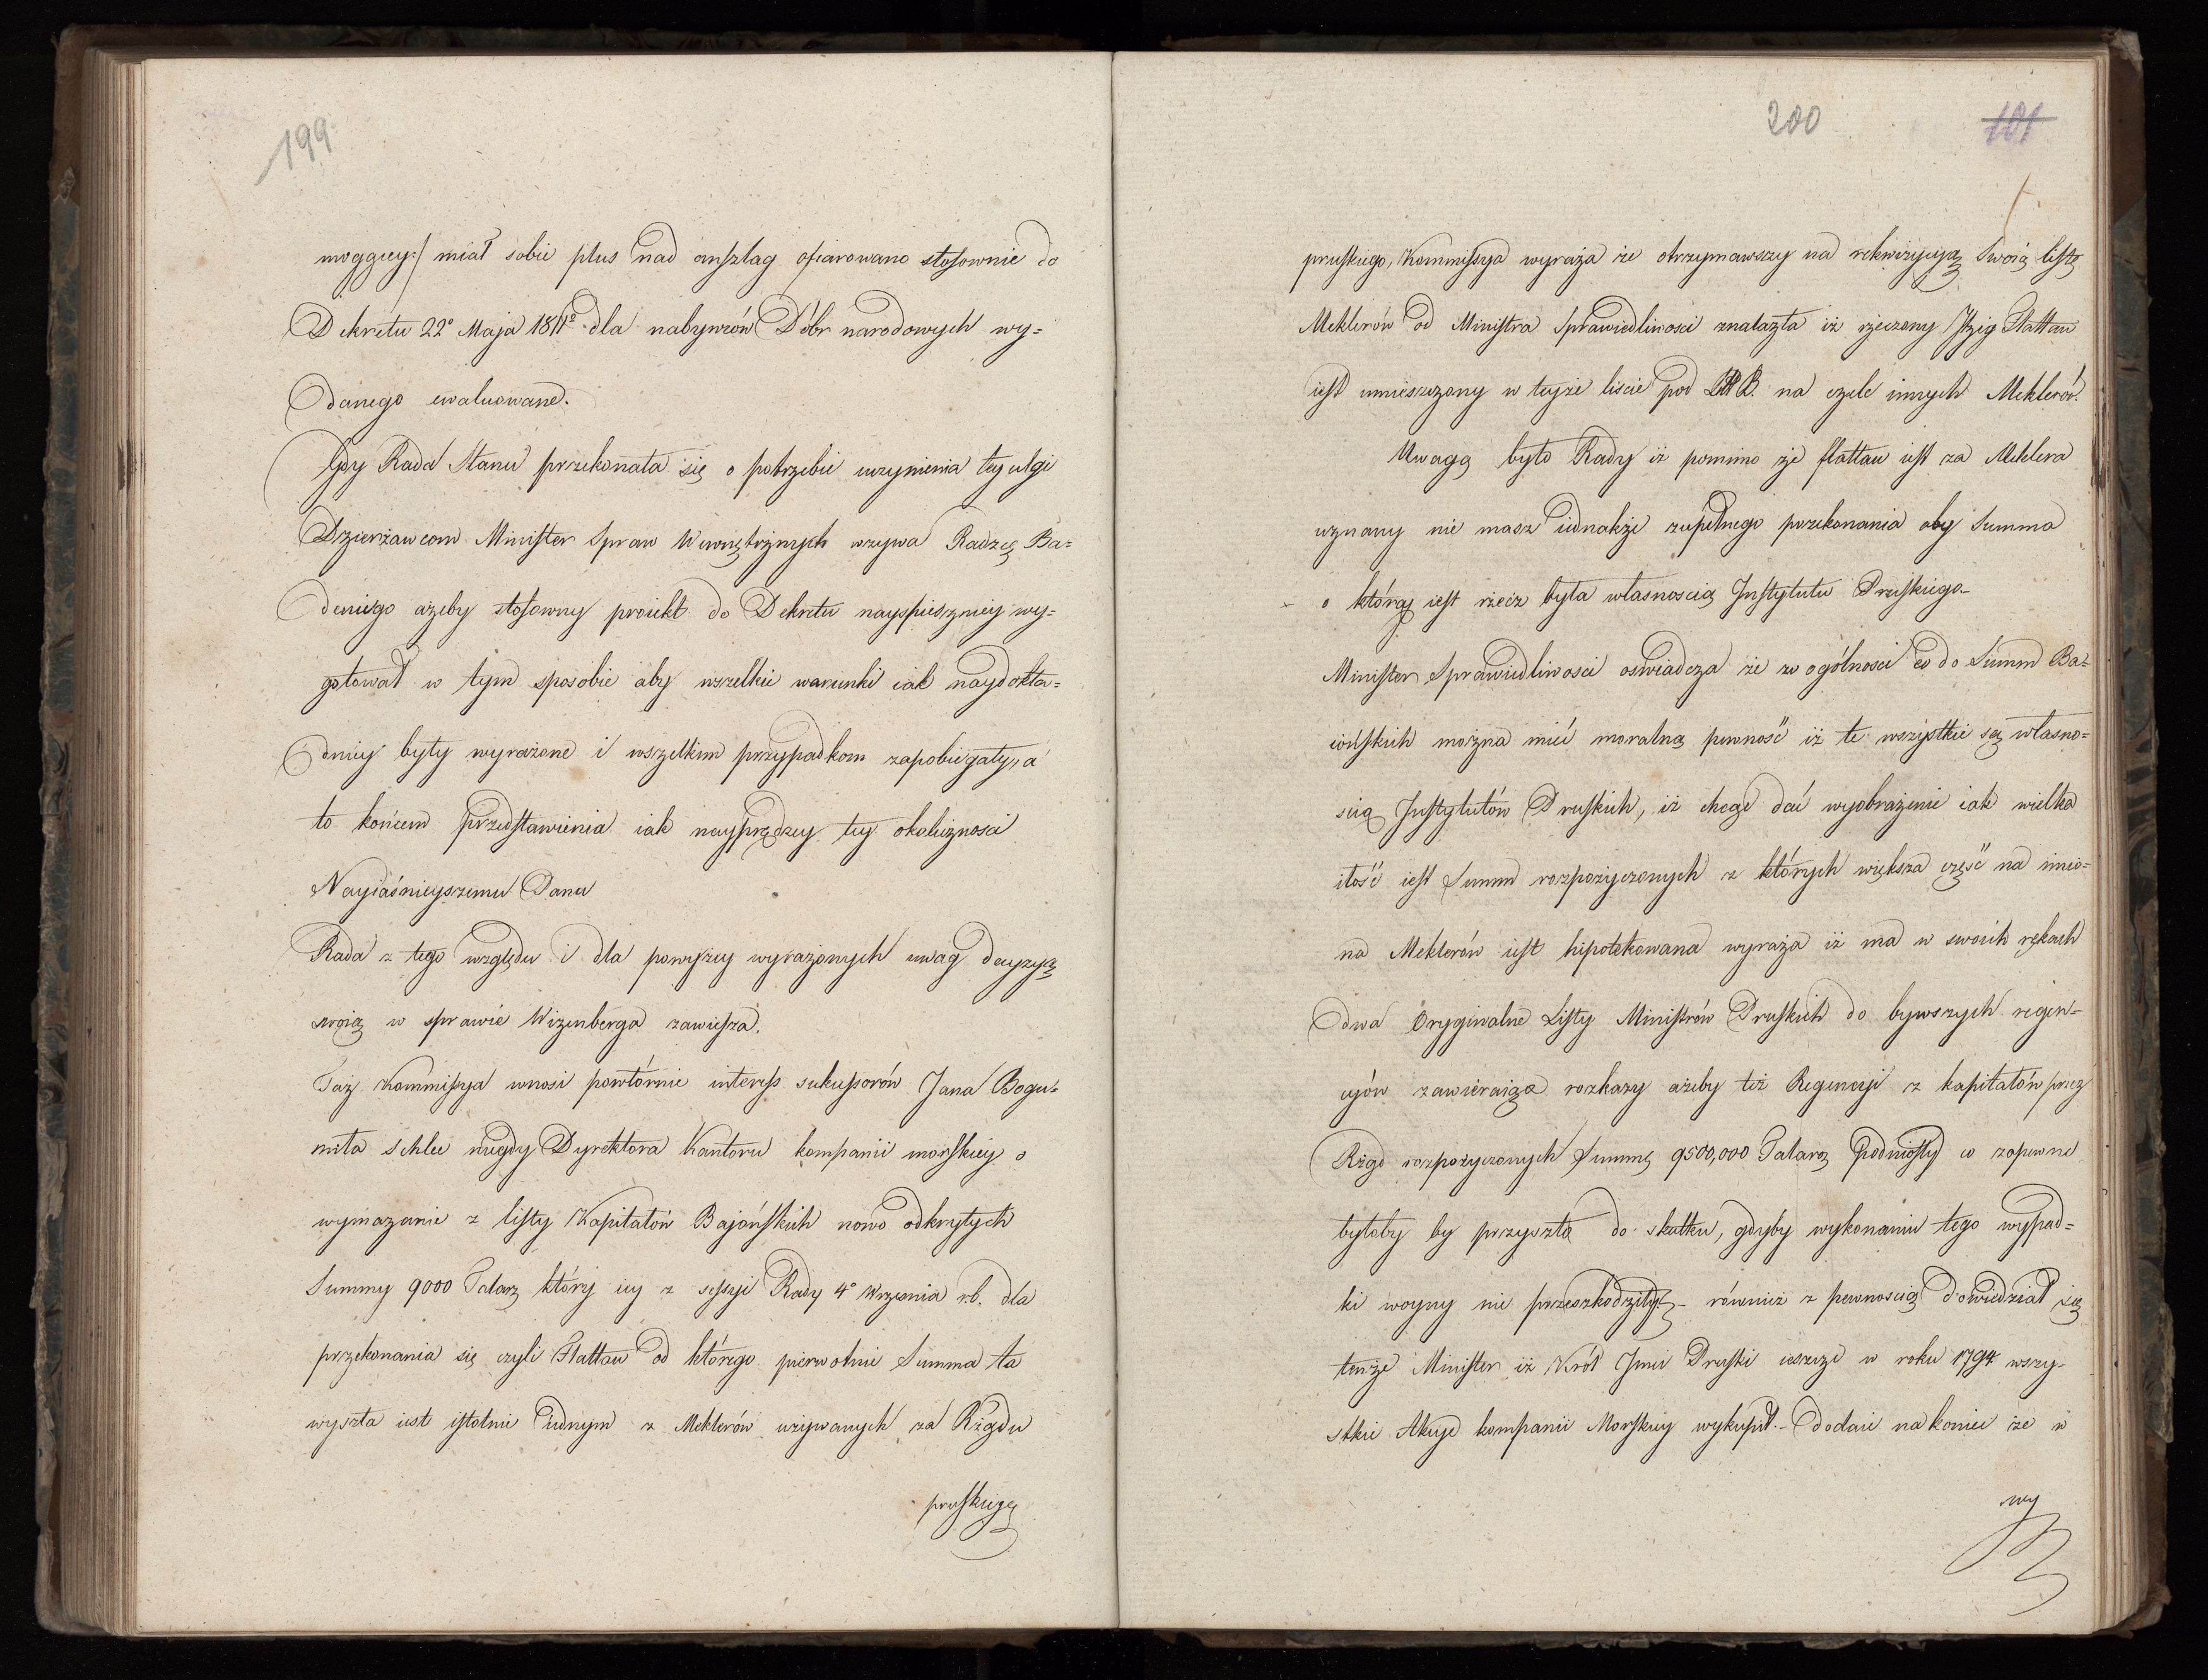 199
mogącey:/ miał sobie plus nad anszlag ofiarowano stosownie do
Dekretu 22º Maja 1811º dla nabywców Dóbr narodowych wy=
danego ewaluowane.
Gdy Rada Stanu przekonała się o potrzebie uczynienia tey ulgi
Dzierżawcom Minister Spraw Wewnętrznych wzywa Radzcę Ba=
deniego ażeby stosowny proiekt do Dekretu nayspieszniey wy=
gotował w tym sposobie aby wszelkie warunki iak naydokła=
dniey były wyrażone i wszelkim przypadkom zapobiegały, a
to końcem przedstawienia iak nayprędzey tey okoliczności
Nayiaśnieyszemu Panu
Rada z tego względu i dla powyżey wyrażonych uwag decyzyą
swoią w sprawie Wizenberga zawiesza.
Taż Kommissya wnosi powtórnie interess sukcessorów Jana Bogu=
miła Schlee niegdy Dyrektora Kantoru kompanii morskiey o
wymazanie z listy Kapitałów Bajońskich nowo odkrytych
Summy 9000 Talarz który iey z sessyi Rady 4º Września r.b. dla
przekonania się czyli Flattau od którego pierwotnie Summa ta
wyszła iest istotnie iednym z Meklerów używanych za Rządu
pruskiego
200
101
pruskiego, Kommissya wyraża że otrzymawszy na rekwizycyą Swoią listę
Meklerów od Ministra Sprawiedliwości znalazła iż rzeczony Itzig Flattau
iest umieszczony w teyże liscie pod Litt B. na czele innych Meklerów.
Uwagą było Rady iż pomimo że flattau iest za Meklera
uznany nie masz iednakże zupełnego przekonania aby Summa
o którą iest rzecz była własnoscią Instytutu Pruskiego
Minister Sprawiedliwości oświadcza że w ogólności co do Summ Ba=
iońskich można mieć moralną pewność iż te wszystkie są własno=
scią Instytutów Pruskich, iż chcąc dać wyobrażenie iak wielka
ilość iest Summ rozpożyczonych z których większa część na imio=
na Meklerów iest hipotekowana wyraża iż ma w swoich rękach
dwa Oryginalne Listy Ministrów Pruskich do bywszych regen=
cyów zawieraiące rozkazy ażeby też Regencyi z kapitałów przez
Rząd rozpożyczonych Summę 9500,000 Talarz podniosły co zapewne
byłoby by przyszło do skutku, gdyby wykonaniu tego wypad=
ki woyny nie przeszkodziły – również z pewnością dowiedział się
tenże Minister iż Król Jmci Pruski ieszcze w roku 1794 wszy=
stkie Akcye kompanii Morskiey wykupił. – dodaie nakoniec że w
wy